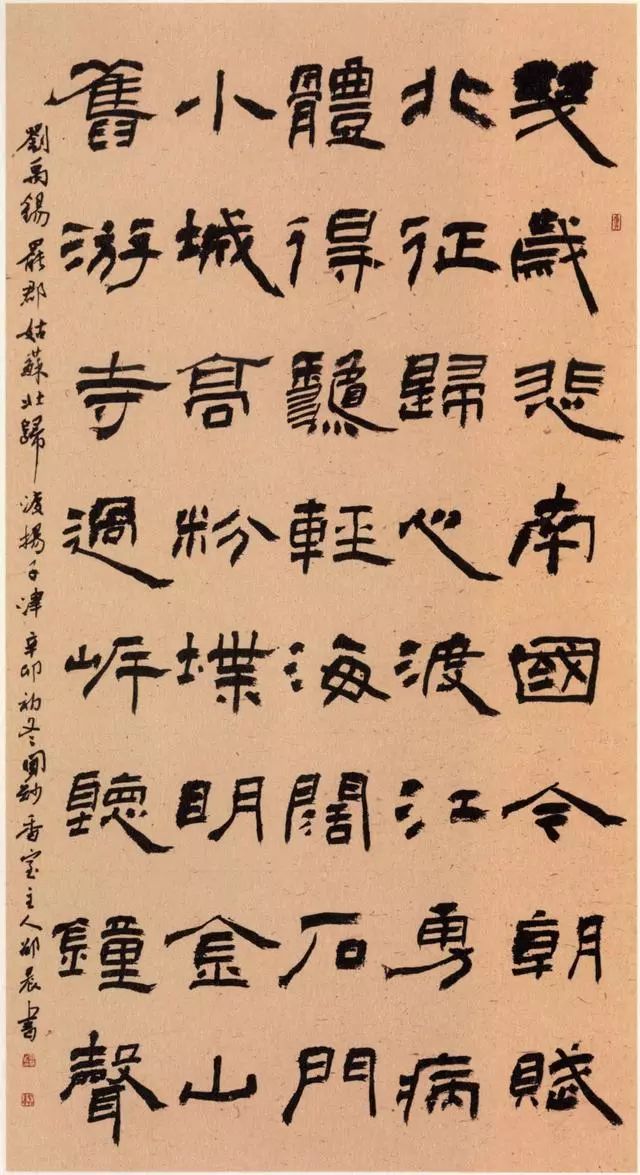 幾歲悲南國今朝賦
北征歸心渡江勇病
體得龝輕海闊石門
小城高粉堞明金山
舊游寺過岸聽鐘聲
劉禹錫罷郡姑蘇北歸渡揚子津辛卯初冬聞妙香室主人晨書